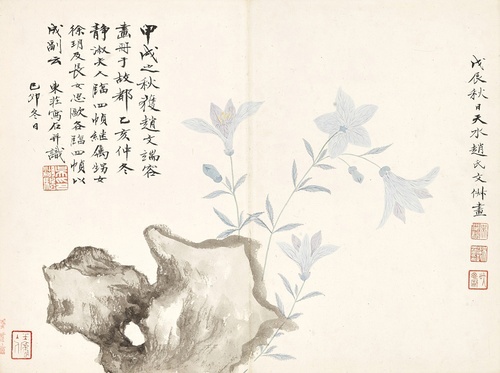 戊辰秋日天水趙氏文俶畫
甲戌之秋獲趙文端容
畫冊于故都乙亥仲冬
靜淑夫人臨四幀繼屬甥女
徐玥及長女思歐各臨四幀以
成副云 東莊寫石并識
己卯冬日